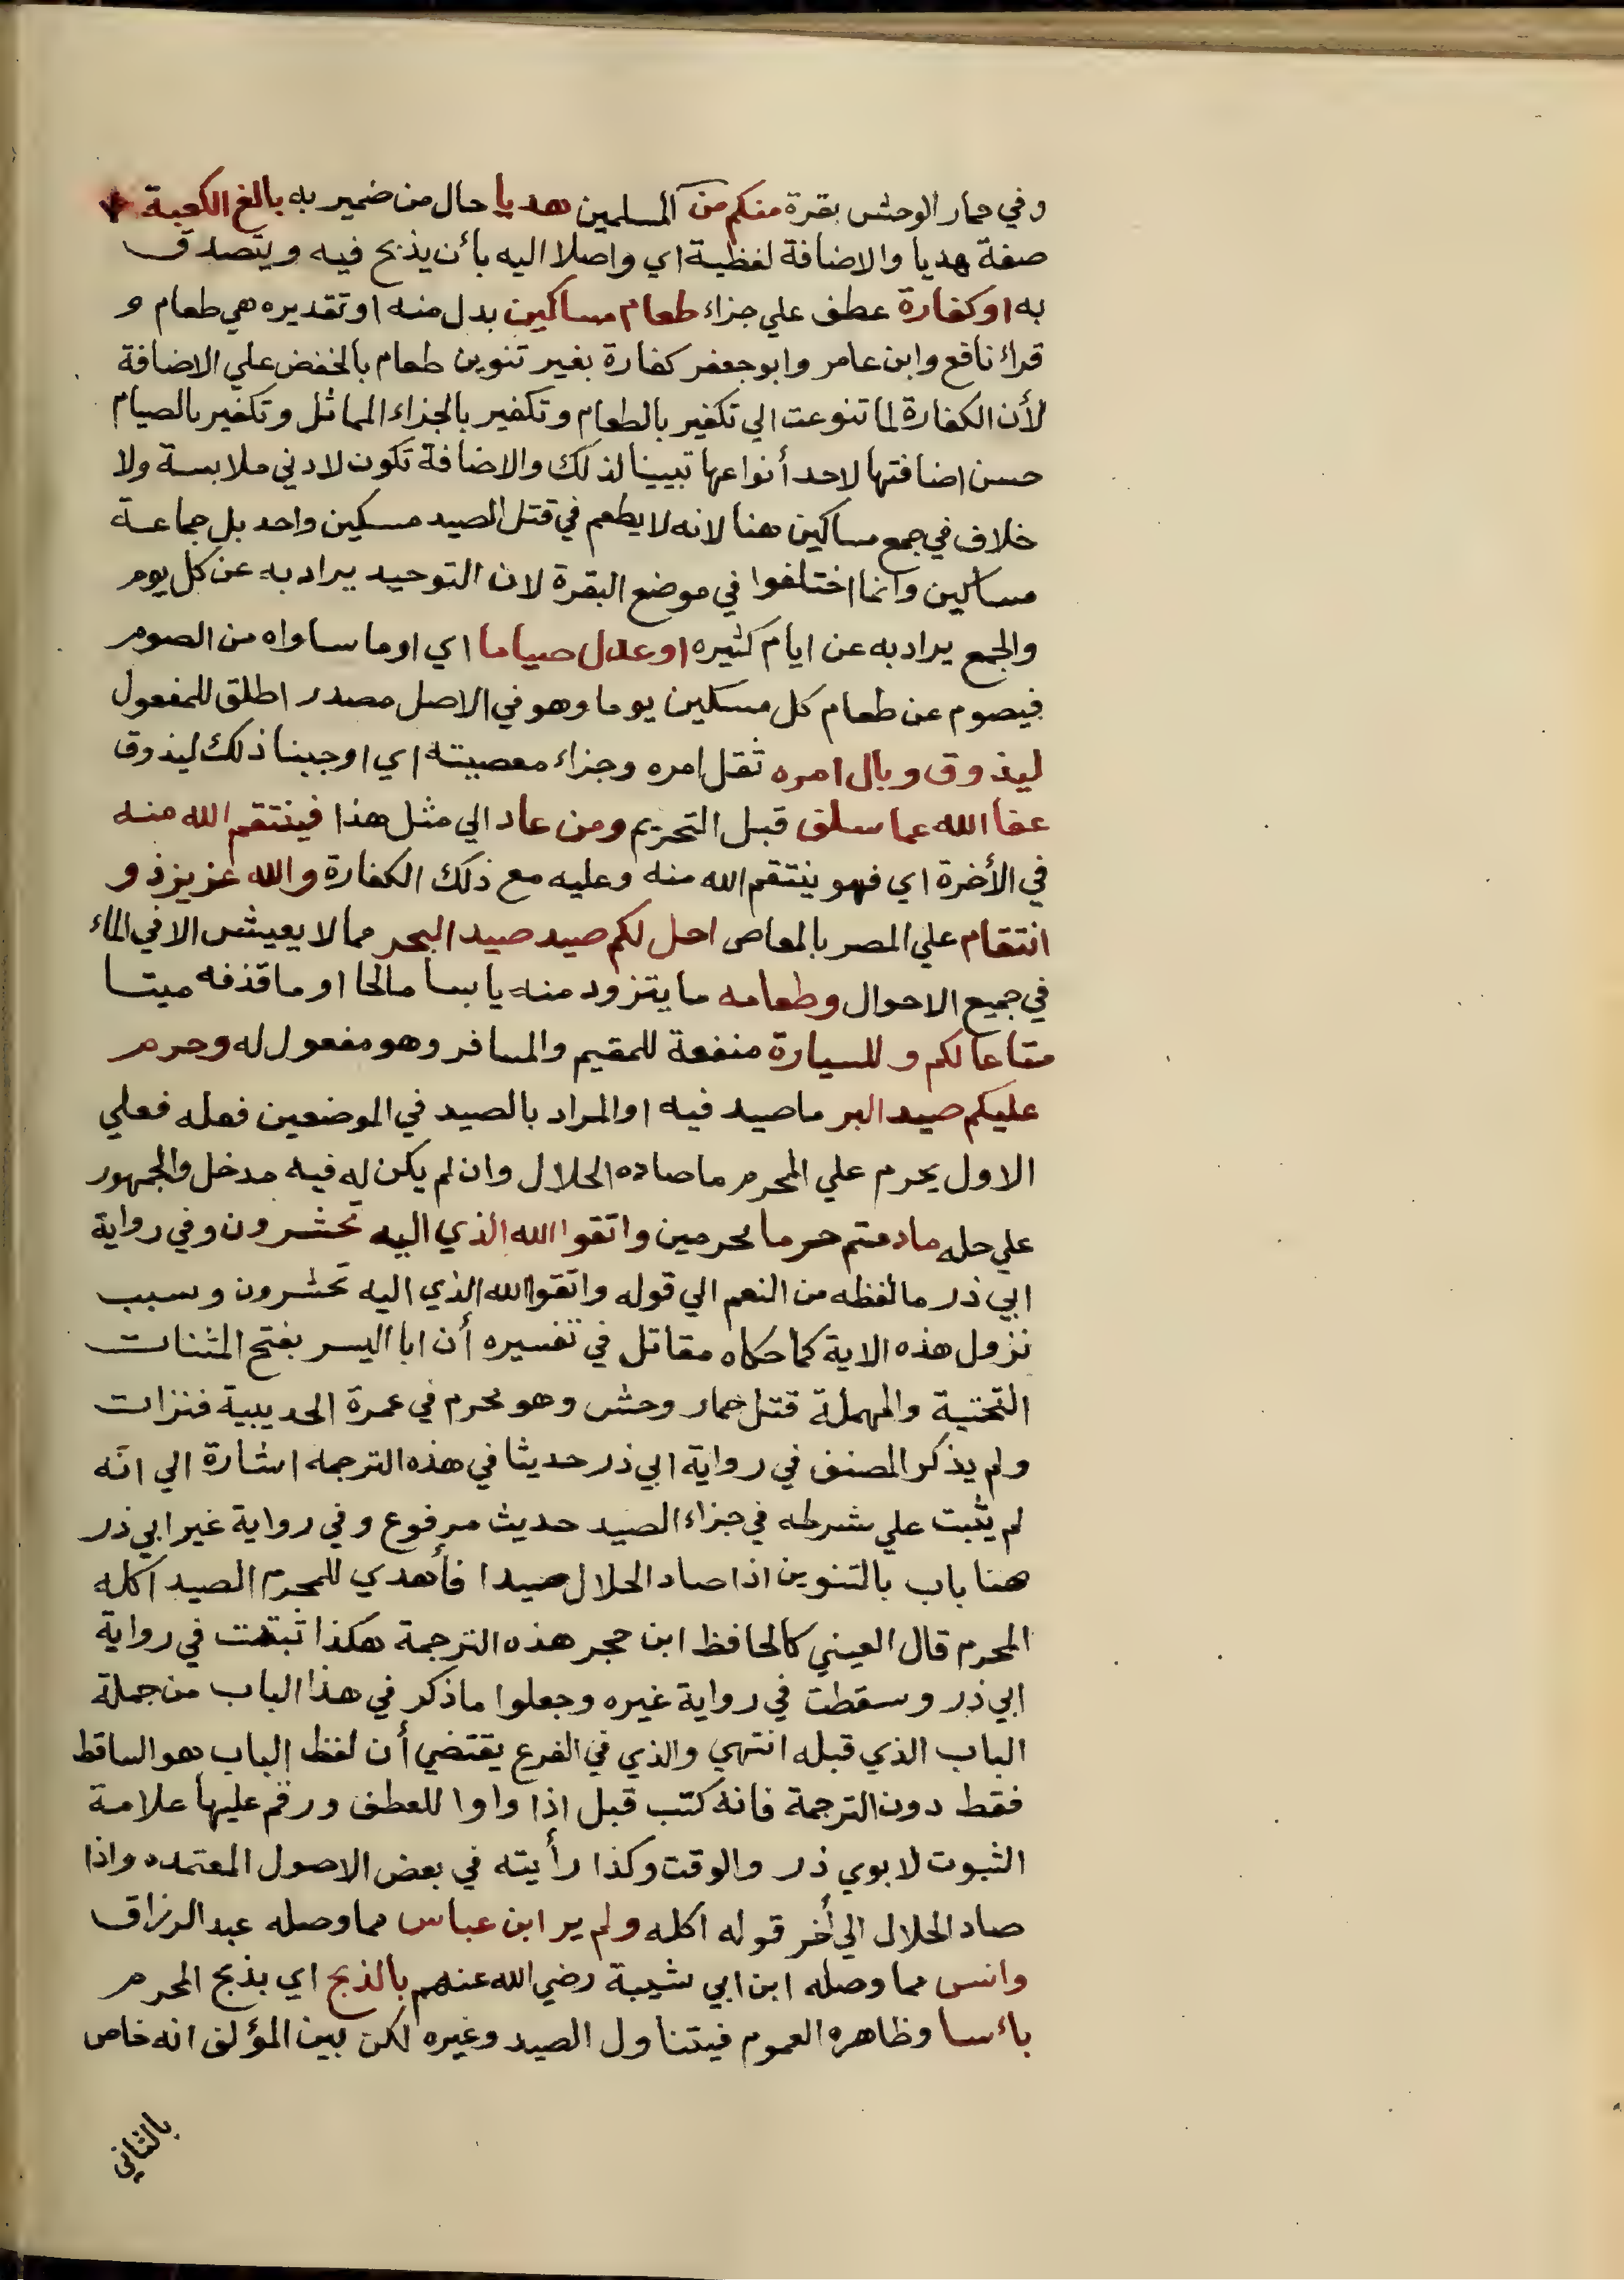 وفي حمار الوحش بقرة منكم من المسلمين هديا حال من ضمير به بالغ الكعبة
صفة هديا والاضافة لفظية اي واصلا اليه بأن يذبح فيه ويتصدق
به اوكفارة عطف علي جزاء طعام مساكين بدل منه او تقديره هي طعام و
قراء نافع وابن عامر وابو جعفر كفارة بغير تنوين طعام بالخفض علي الاضافة
لأن الكفارة لما تنوعت الي تكفير بالطعام وتكفير بالجزاء المماثل وتكفير بالصيام
حسن اضافتها لاحد أنواعها تبيينا لذلك والاضافة تكون لادني ملابسة ولا
خلاف في جمع مساكين هنا لانه لا يطعم في قتل الصيد مسكين واحد بل جماعة
مساكين وانما اختلفوا في موضع البقرة لان التوحيد يراد به عن كل يوم
والجمع يراد به عن ايام كثيره اوعدل صياما اي اوما ساواه من الصوم
فيصوم عن طعام كل مسكين يوما وهو في الاصل مصدر اطلق للمفعول
ليذوق وبال امره ثقل امره وجزاء معصيته اي اوجبنا ذلك ليذوق
عفا الله عما سلف قبل التحريم ومن عاد الي مثل هذا فينتقم الله منه
في الأخرة اي فهو ينتقم الله منه وعليه مع ذلك الكفارة والله عزيز ذو
انتقام علي المصر بالمعاص احل لكم صيد صيد البحر مما لا يعيش الا في الماء
في جميع الاحوال وطعامه ما يتزود منه يابسا مالحا او ما قذفه ميتا
متاعا لكم و للسيارة منفعة للمقيم والمسافر وهو مفعول له وحرم
عليكم صيد البر ما صيد فيه او المراد بالصيد في الموضعين فعله فعلي
الاول يحرم علي المحرم ما صاده الحلال وان لم يكن له فيه مدخل والجمهور
علي حله مادمتم حرما محرمين واتقوا الله الذي اليه تحشرون وفي رواية
ابي ذر ما لفظه من النعم الي قوله واتقوا الله الذي اليه تحشرون وسبب
نزول هذه الاية كما حكاه مقاتل في تفسيره أن ابا اليسر بفتح المثنات
التحتية والمهملة قتل حمار وحش وهو محرم في عمرة الحديبية فنزلت
ولم يذكر المصنف في رواية ابي ذر حديثا في هذه الترجمه اشارة الي انه
لم يثبت علي شرطه في جزاء الصيد حديث مرفوع وفي رواية غير ابي ذر
هنا باب بالتنوين اذا صاد الحلال صيدا فأهدي للمحرم الصيد اكله
المحرم قال العيني كالحافظ ابن حجر هذه الترجمة هكذا ثبتت في رواية
ابي ذر وسقطت في رواية غيره وجعلوا ما ذكر في هذا الباب من جملة
الباب الذي قبله انتهي والذي في الفرع يقتضي أن لفظ الباب هو الساقط
فقط دون الترجمة فانه كتب قبل اذا واوا للعطف ورقم عليها علامة
الثبوت لابوي ذر والوقت وكذا رأيته في بعض الاصول المعتمده واذا
صاد الحلال الي أخر قوله اكله ولم ير ابن عباس مما وصله عبد الرزاق
وانس مما وصله ابن ابي شيبة رضي الله عنهم بالذبح اي بذبح المحرم
باءسا وظاهره العموم فيتناول الصيد وغيره لكن بين المؤلف انه خاص
بالثاني